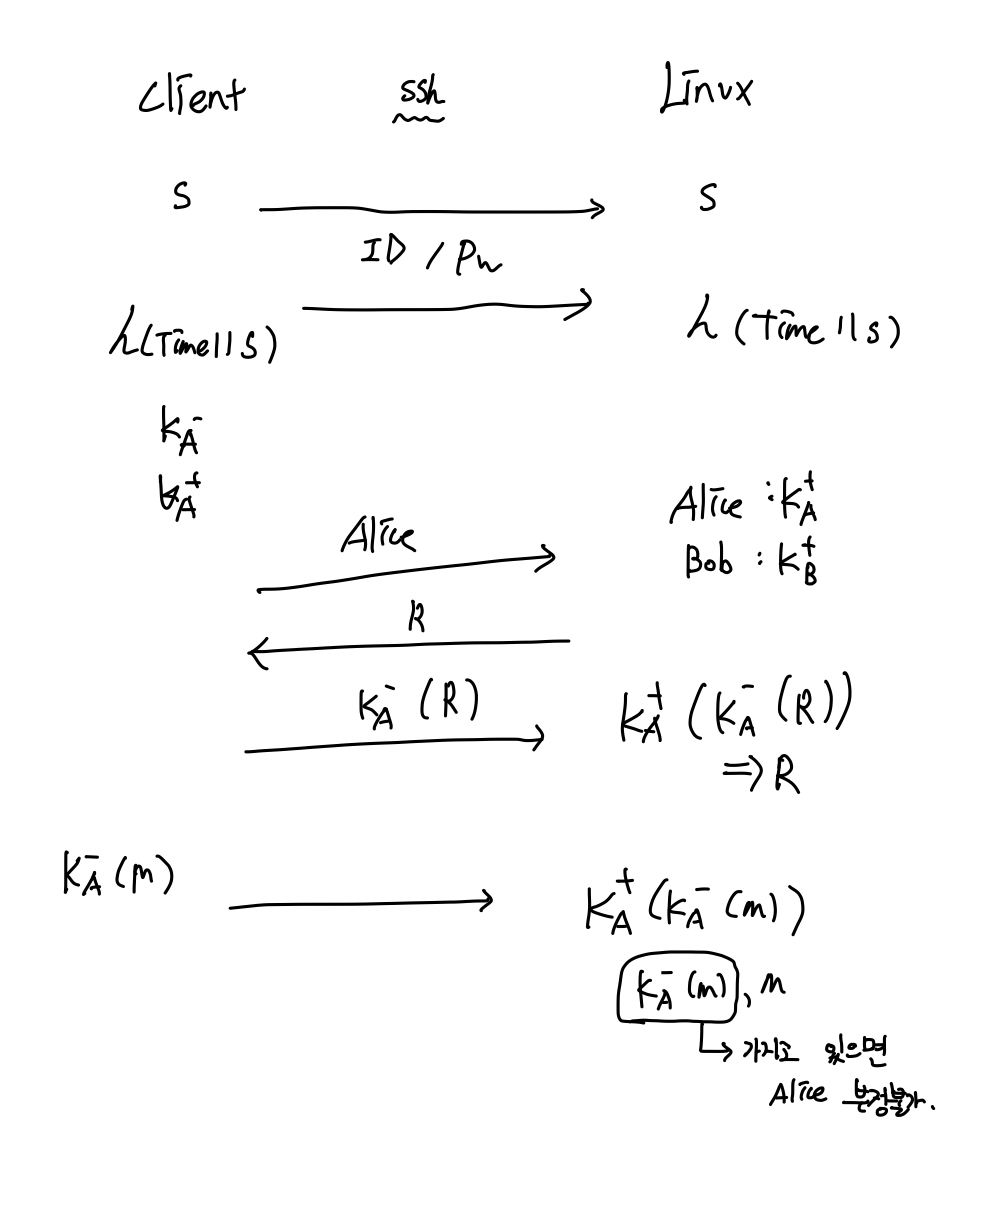 Client ssh Linux
S S
ID / Pw
h(Time||S) h(time||s)
K_A^-
K_A^+
Alice : K_A^+
Alice
Bob : K_B^+
R
K_A^- (R) K_A^+ (K_A^- (R))
⇒ R
K_A^- (m) K_A^+ (K_A^- (m))
K_A^- (m), m
가지고 있으면
Alice 부정불가.